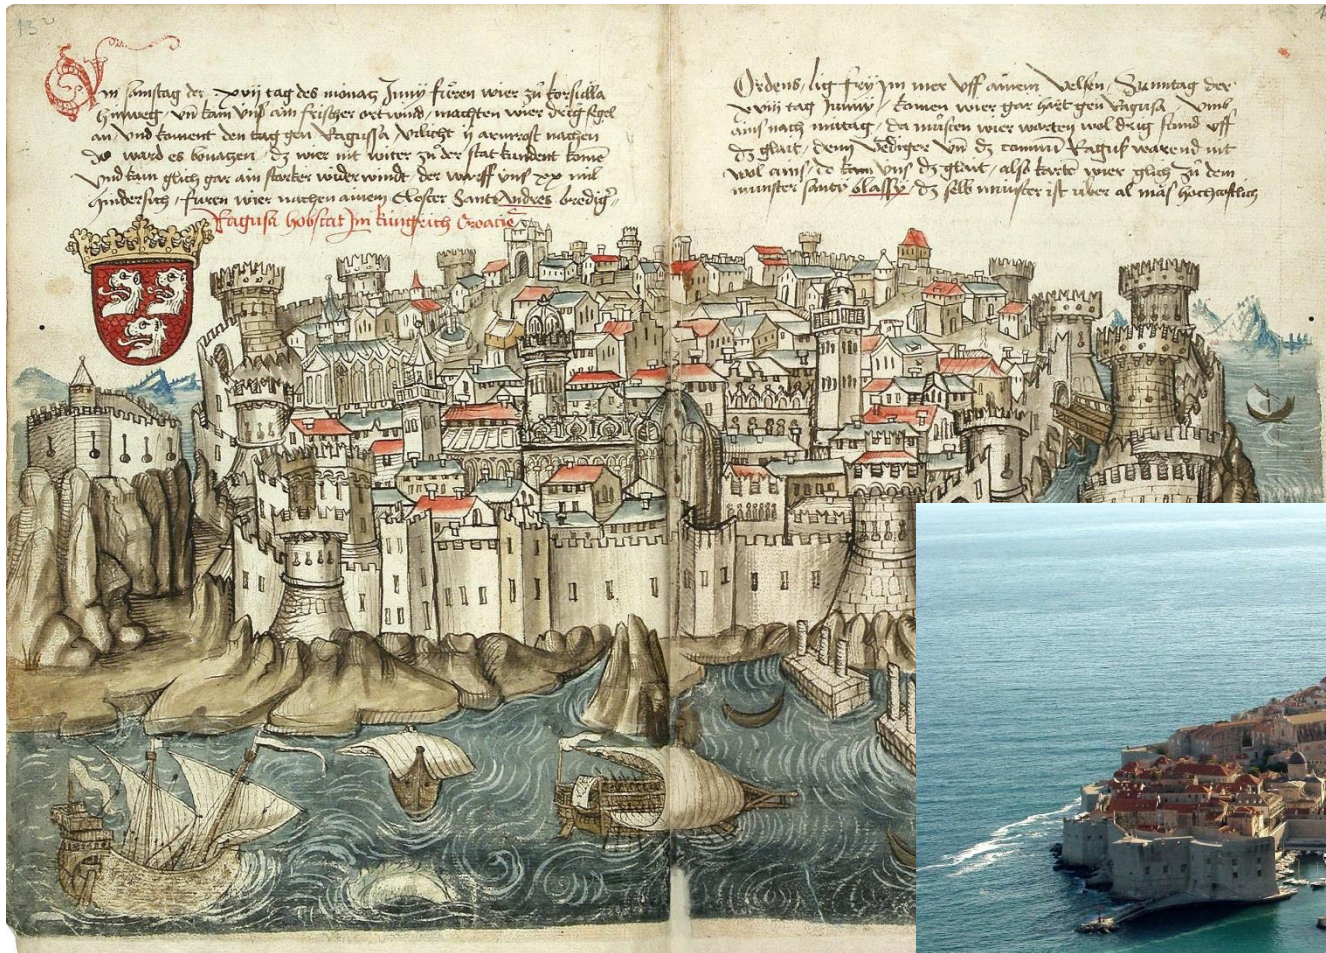 132
samstag der xvij tag des monatz Juny fůren wier zů korsulla
hinweg / vn̄ kam vnß ain frischer ortwind / machten wier drig segel
an / vnd koment den tag gen Ragussa / vilicht ij armrost nachen
Do ward es bonatzen / dz wier nit witer zů der stat kundent komē
vnd kam glich gar ain starker wider windt der warff vnß xx mil
hindersich / fůren wier nachen ainem Closter Sant Andres bredig
Ragusa hobstat Jm küngkrich Croacie
Ordens / lig fry Jm mer vff ainem velsen / Sunntag der
xviij tag Junny / komen wier gar hart gen Ragusa / vmb
ains nach mitag / da můsten wier warten wol drig stund vff
dz glait / denn vediger vn̄ dz comun Raguß warend nit
wol ains / do kam vns dz glait / also kartē wier glich zů dem
münster santt blassy / dz selb münster ist über al mäs hochcostlich